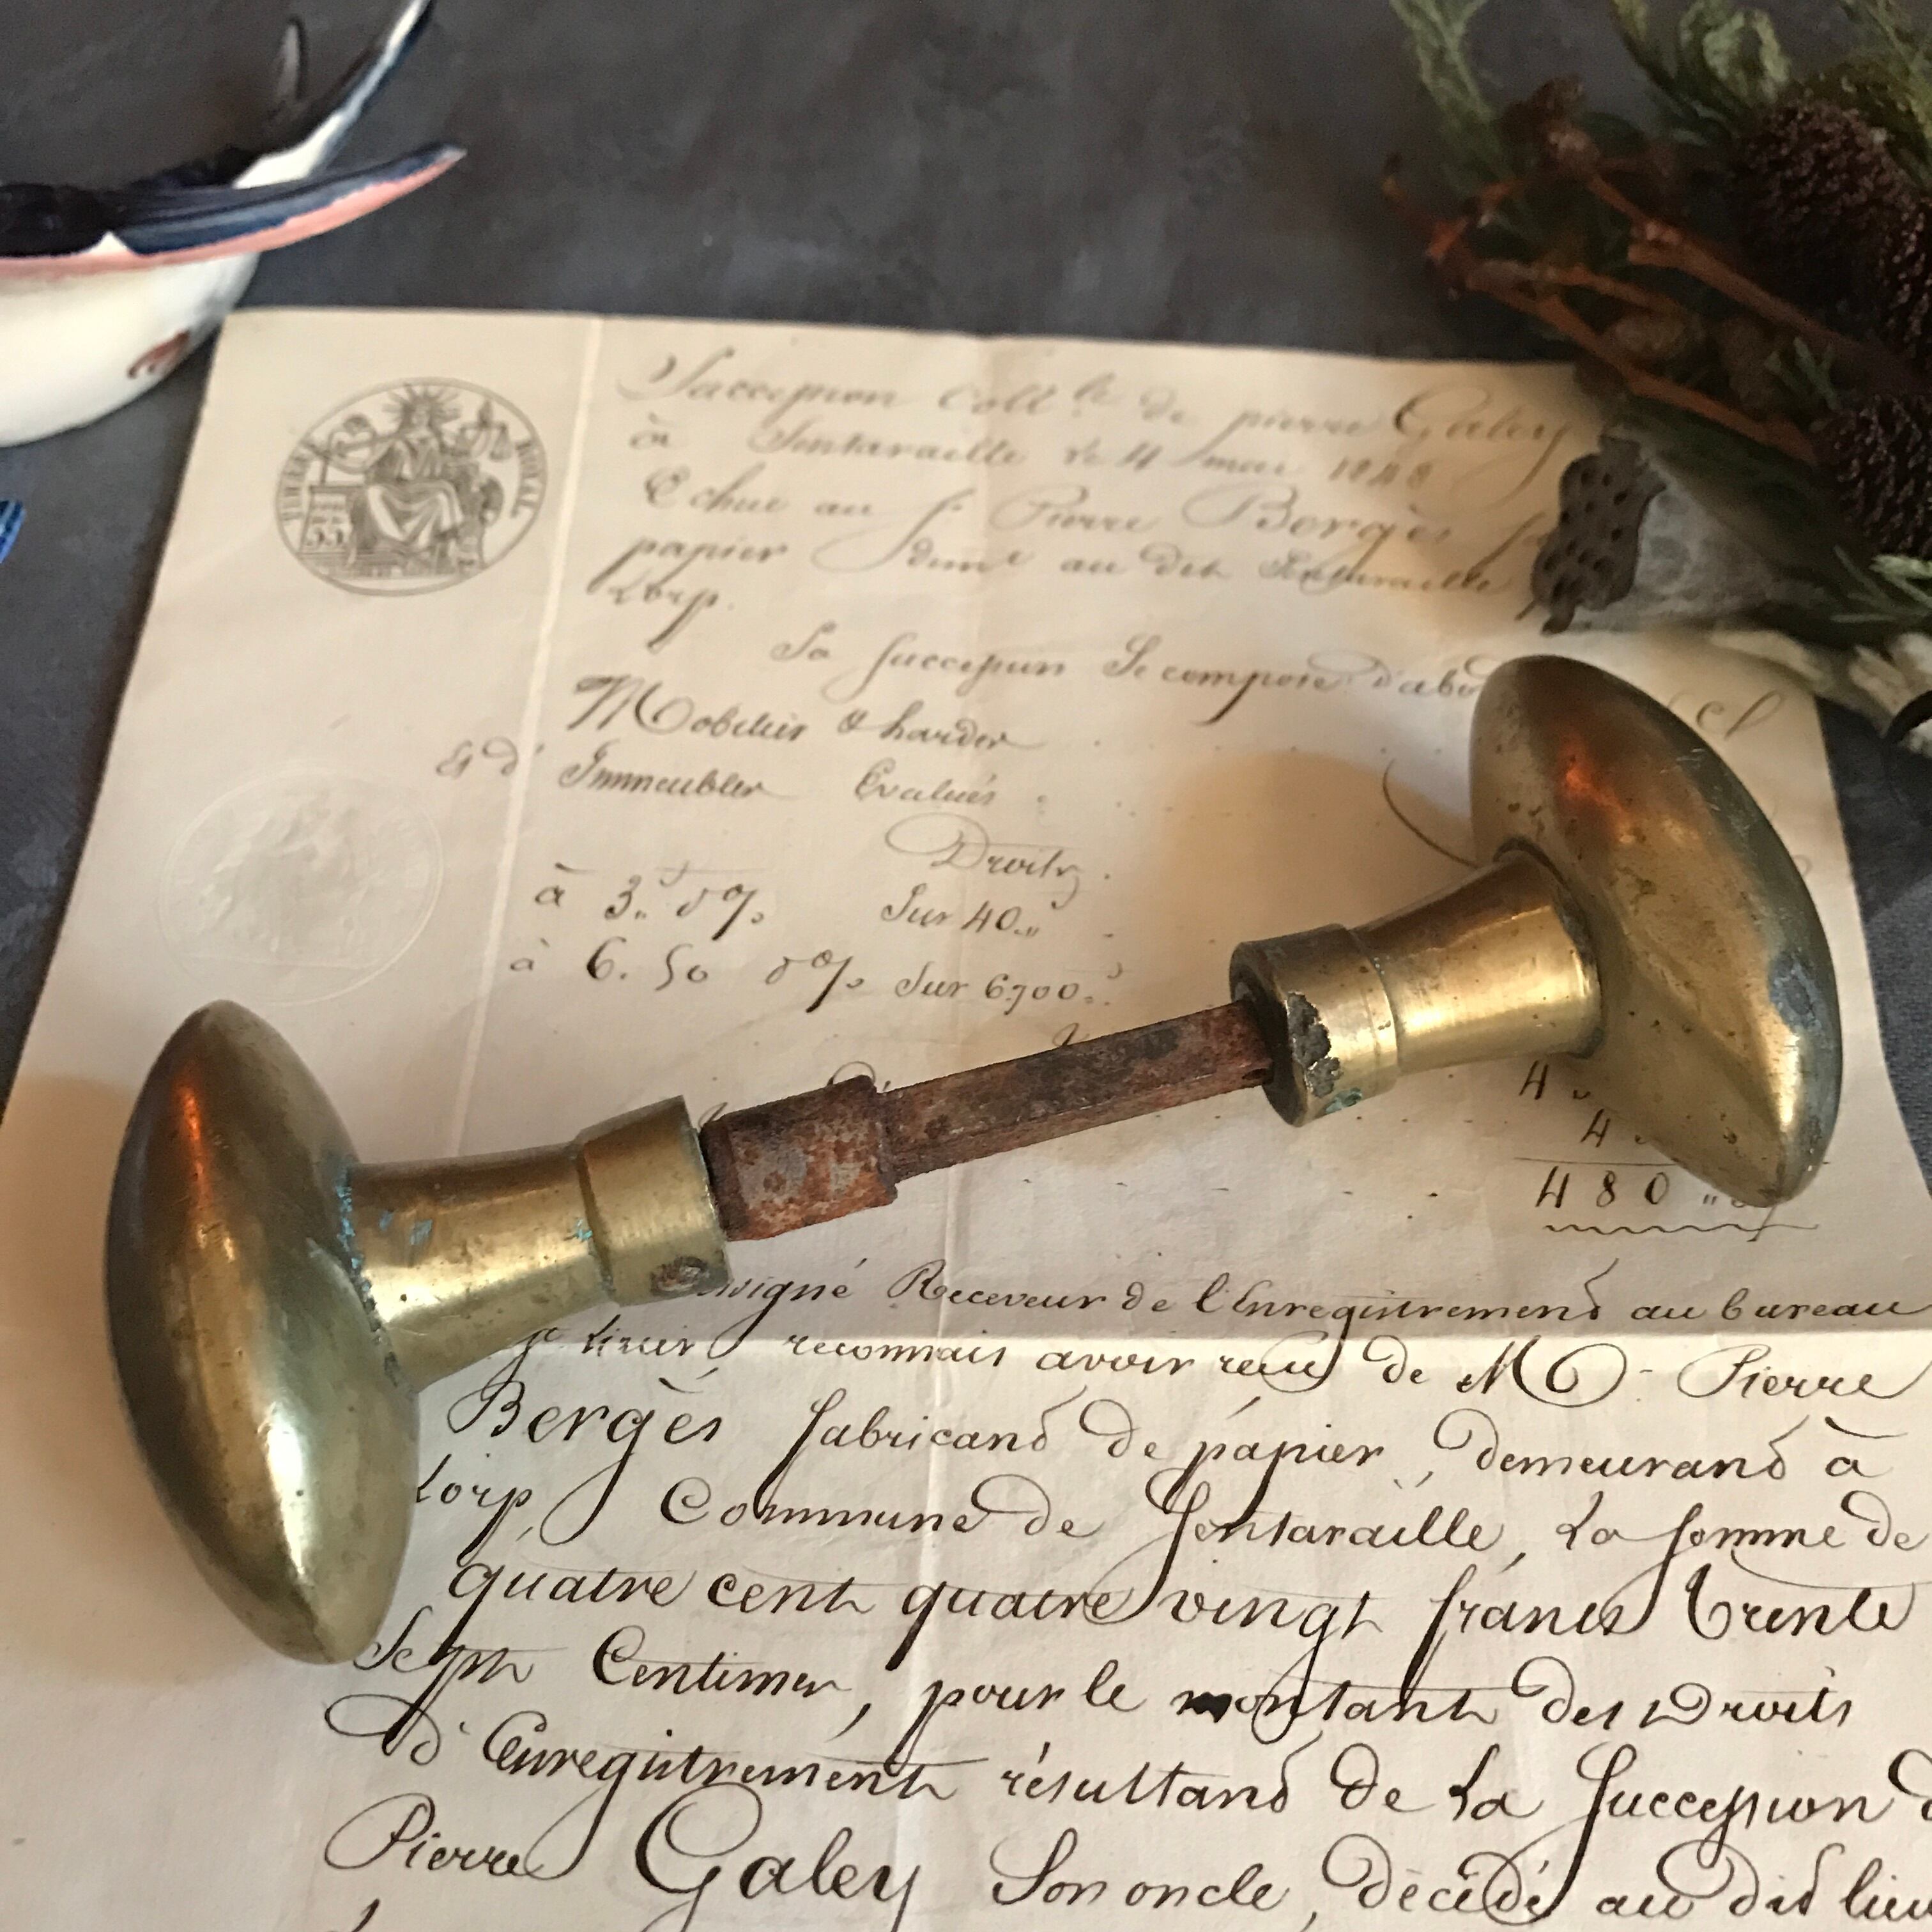 TIMBRE ROYAL
35
Succession Coll.le de pierre Galey
à Sentaraille le 4 mai 1848
Echue au s. Pierre Bergès
papier dem.t au dit Sentaraille
Lorp.
La succession se compose d'abo
Mobilier & hardes
et d' Immeubles Evalués
Droits
à 3.. 0% Sur 40..
à 6. 50 0% Sur 6700..
4
4
480
ssigné Receveur de l'Enregistrement au bureau
reconnais avoir reçu de M. Pierre
Bergès fabricand de papier, demeurand à
Lorp, Commune de Sentaraille, La somme de
quatre cent quatre vingt francs trente
Sept Centimes, pour le montant des Droits
d'Enregistrement résultand de La Succession d
Pierre Galey Son oncle, décédé au dit lieu